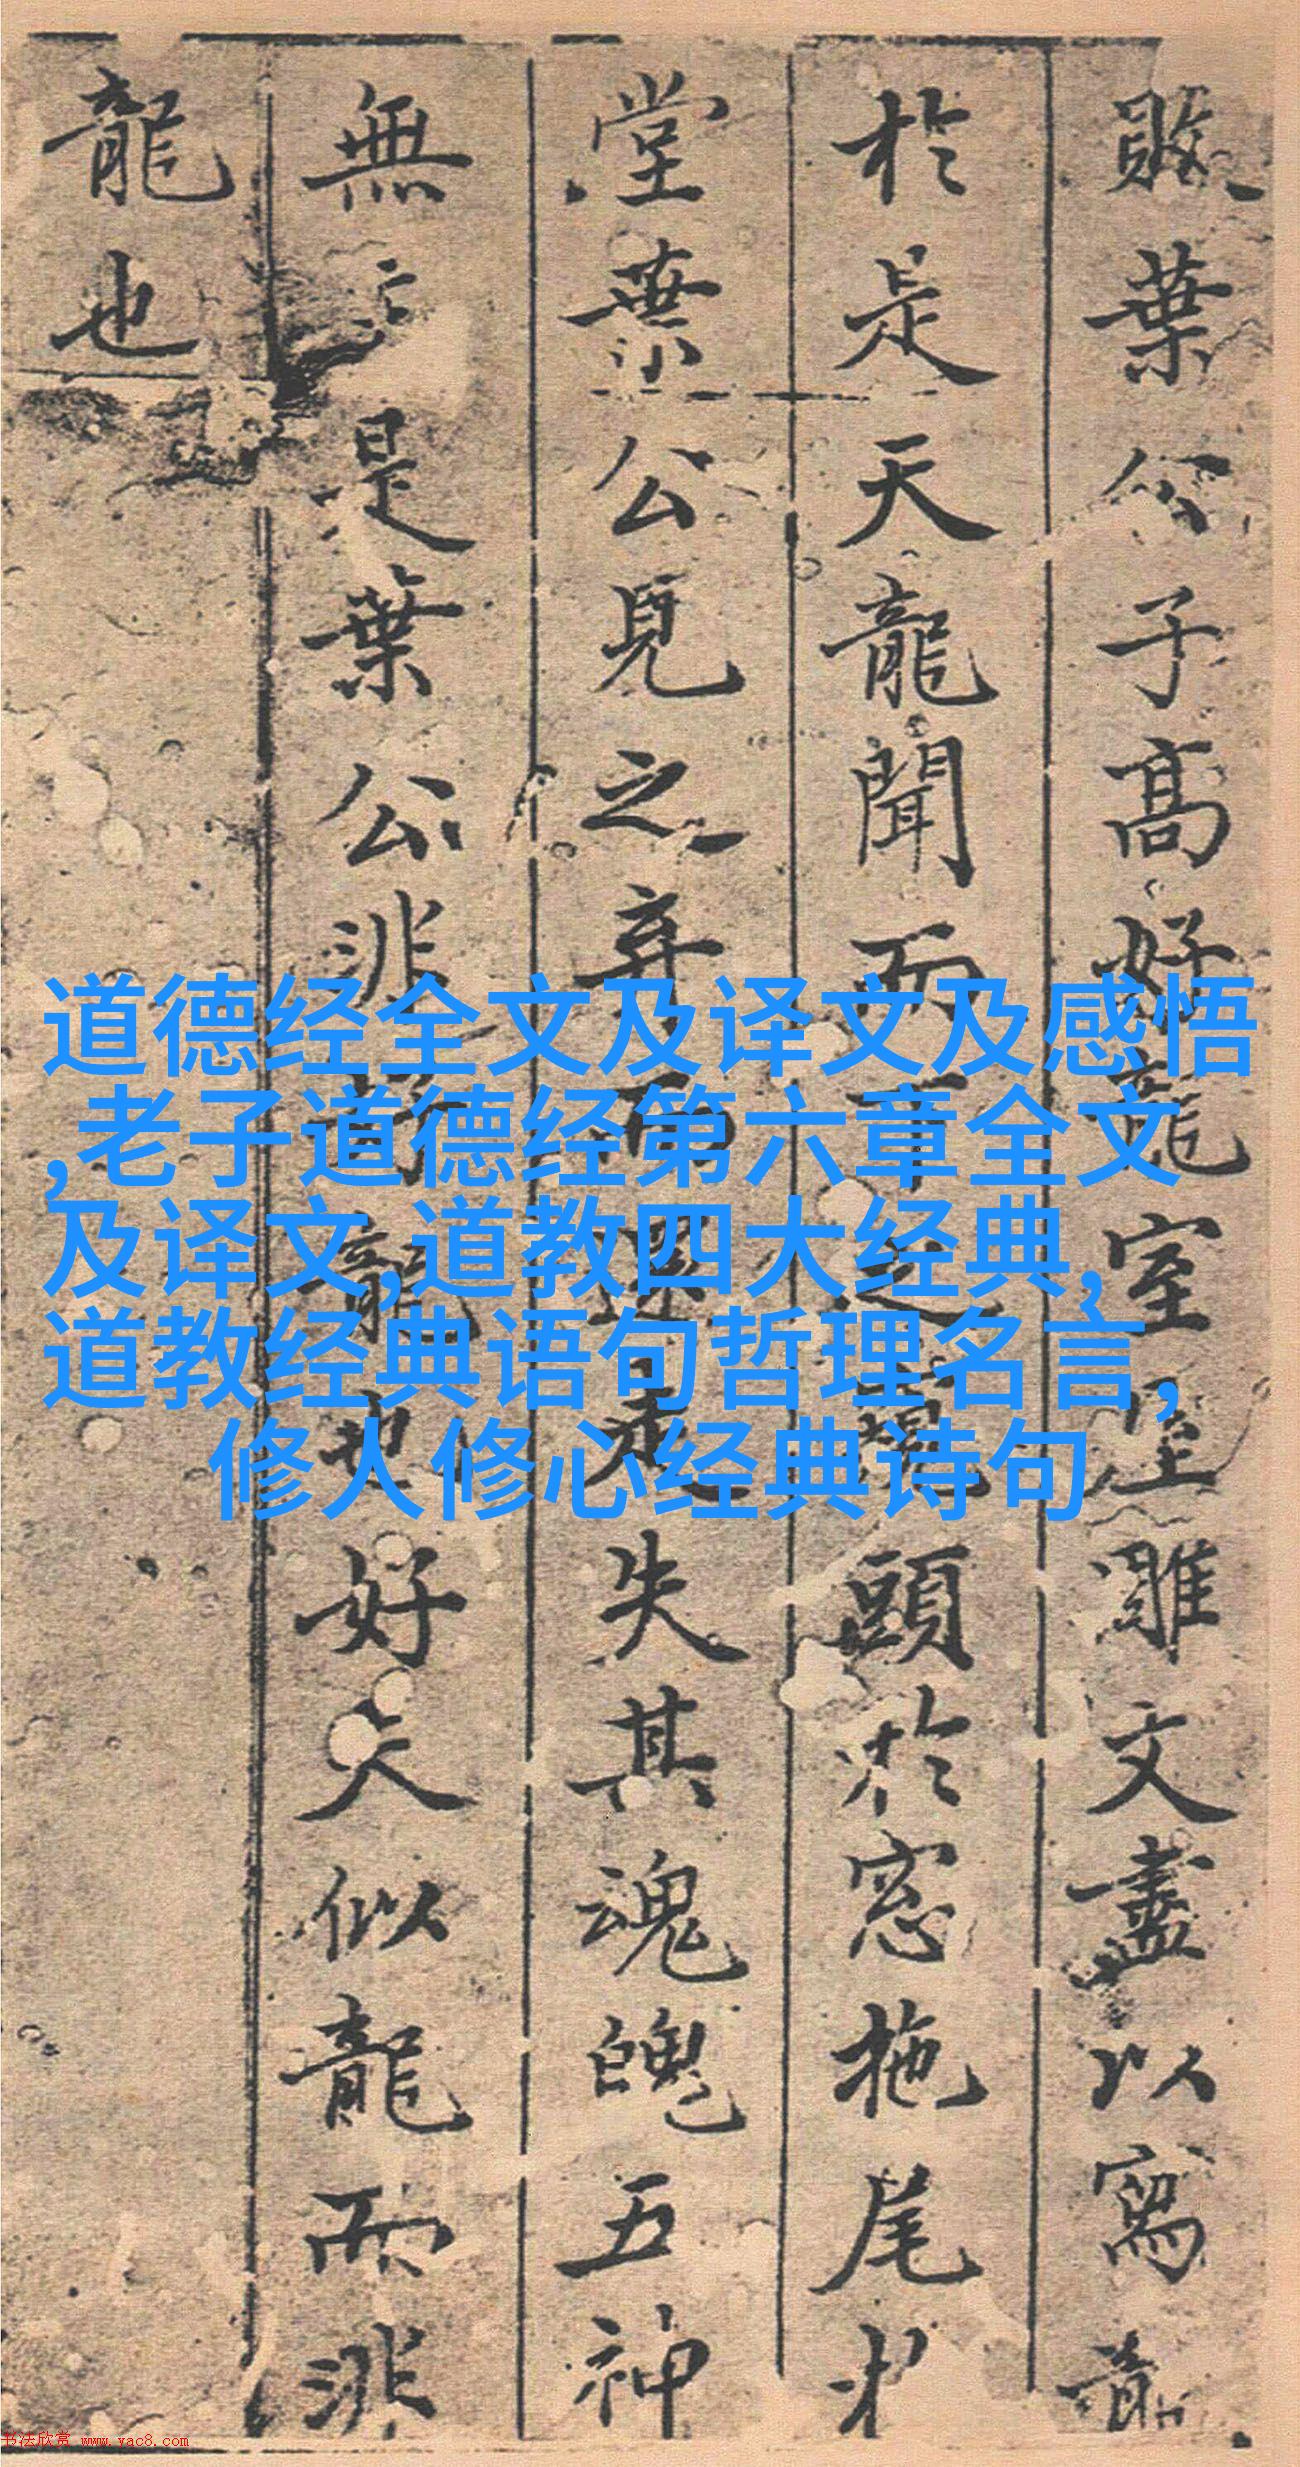 敗葉公子高好龍室屋雕文盡以寫龍
於是天龍聞而下之窺頭於窓拖尾於
堂葉公見之弃而還走失其魂魄五神
無主是葉公非好龍也好夫似龍而非
龍也
道德经全文及译文及感悟
,老子道德经第六章全文
及译文,道教四大经典,
道教经典语句哲理名言,
修人修心经典诗句
书法欣赏 www.yac8.com